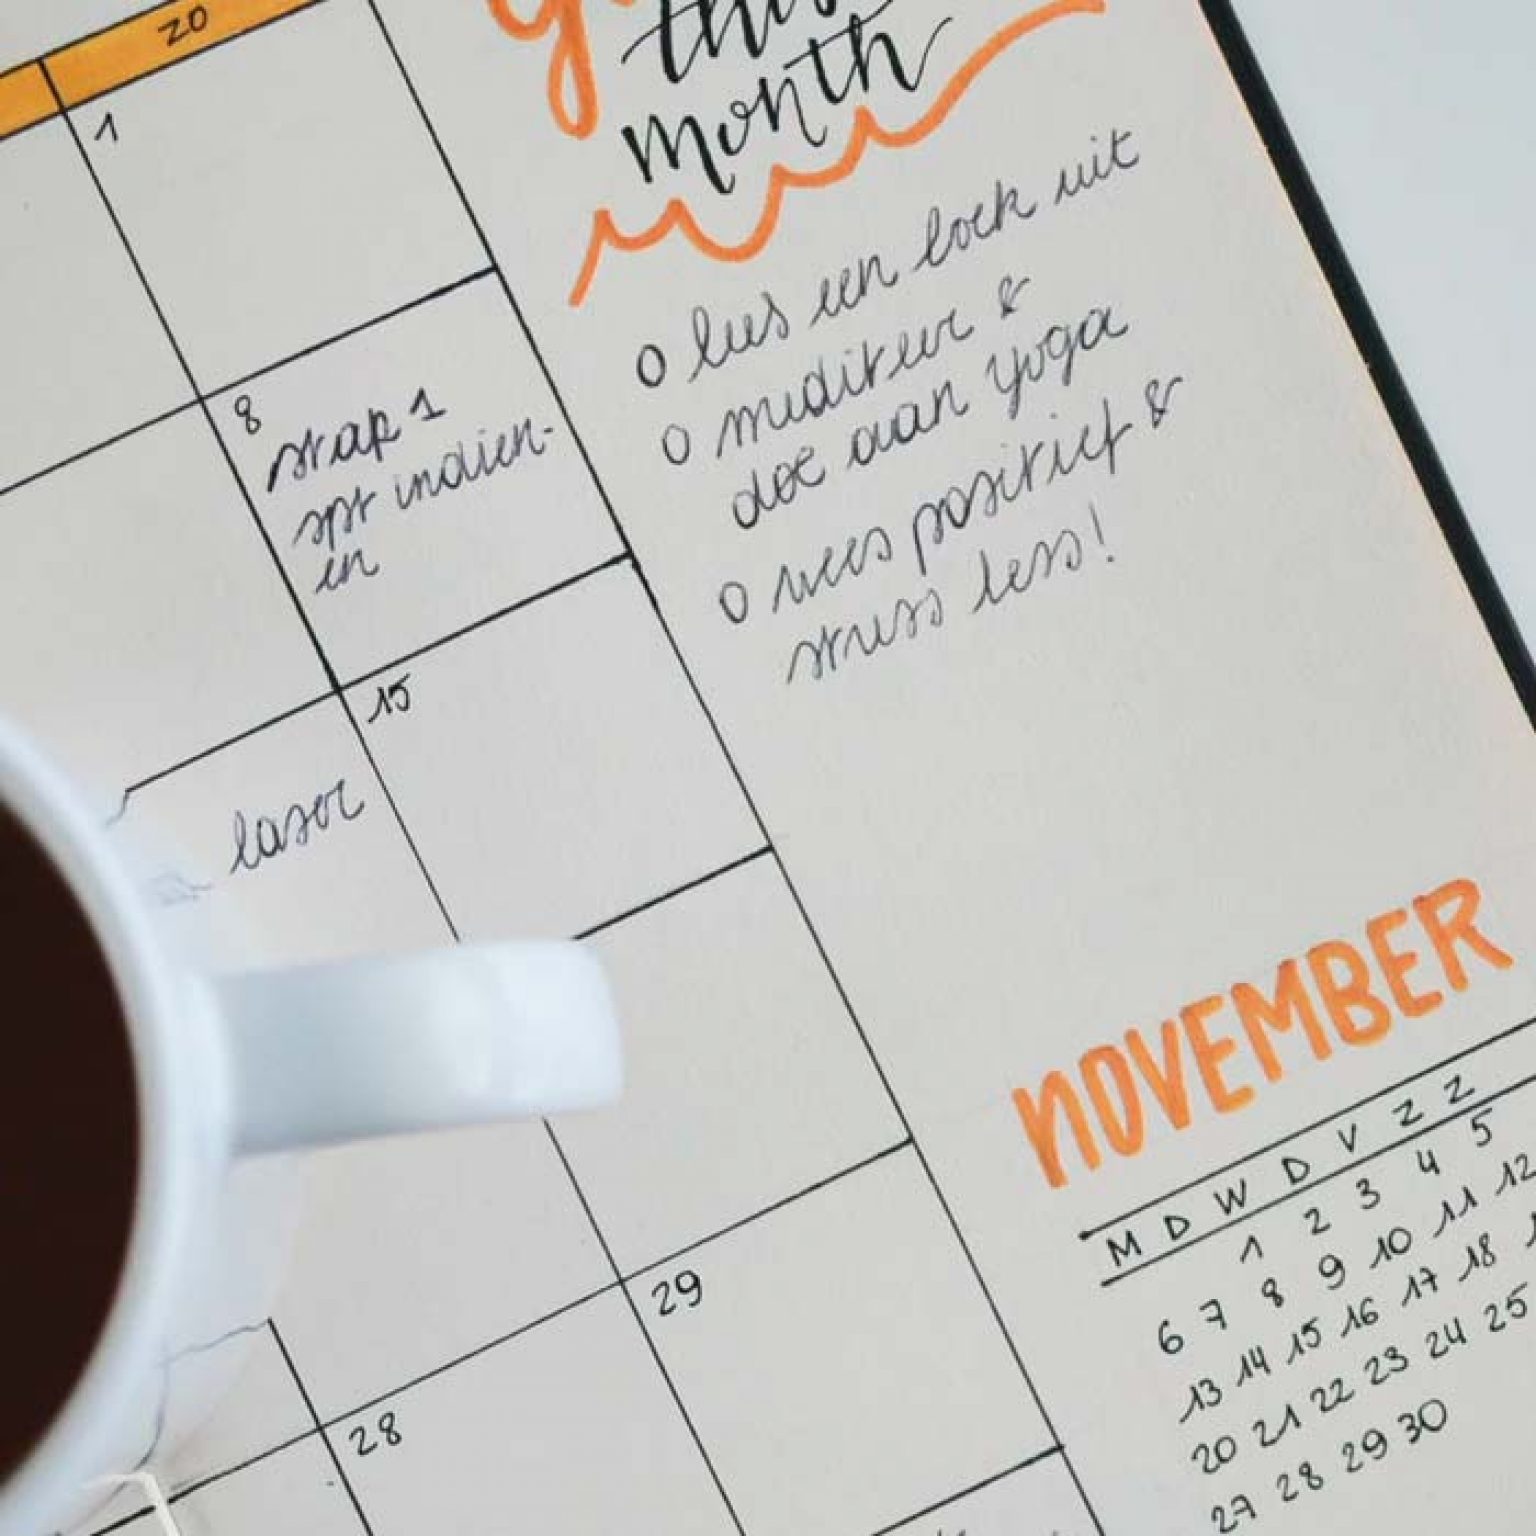 ZO
1
this
month
o lees een boek uit
o mediteer &
doe aan yoga
o wees positief &
stress less!
8
stap 1
spr indien-
en
15
laser
29
28
NOVEMBER
M D W D V Z Z
1 2 3 4 5
6 7 8 9 10 11 12
13 14 15 16 17 18
20 21 22 23 24 25
27 28 29 30